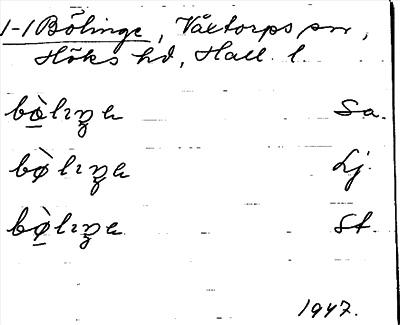 1-1 Bölinge, Växtorps sn,
Höks hd, Hall. l.
bø̀lıŋe Sa.
bø̀lıŋe Lj.
bø̀lıŋe St.
1947.